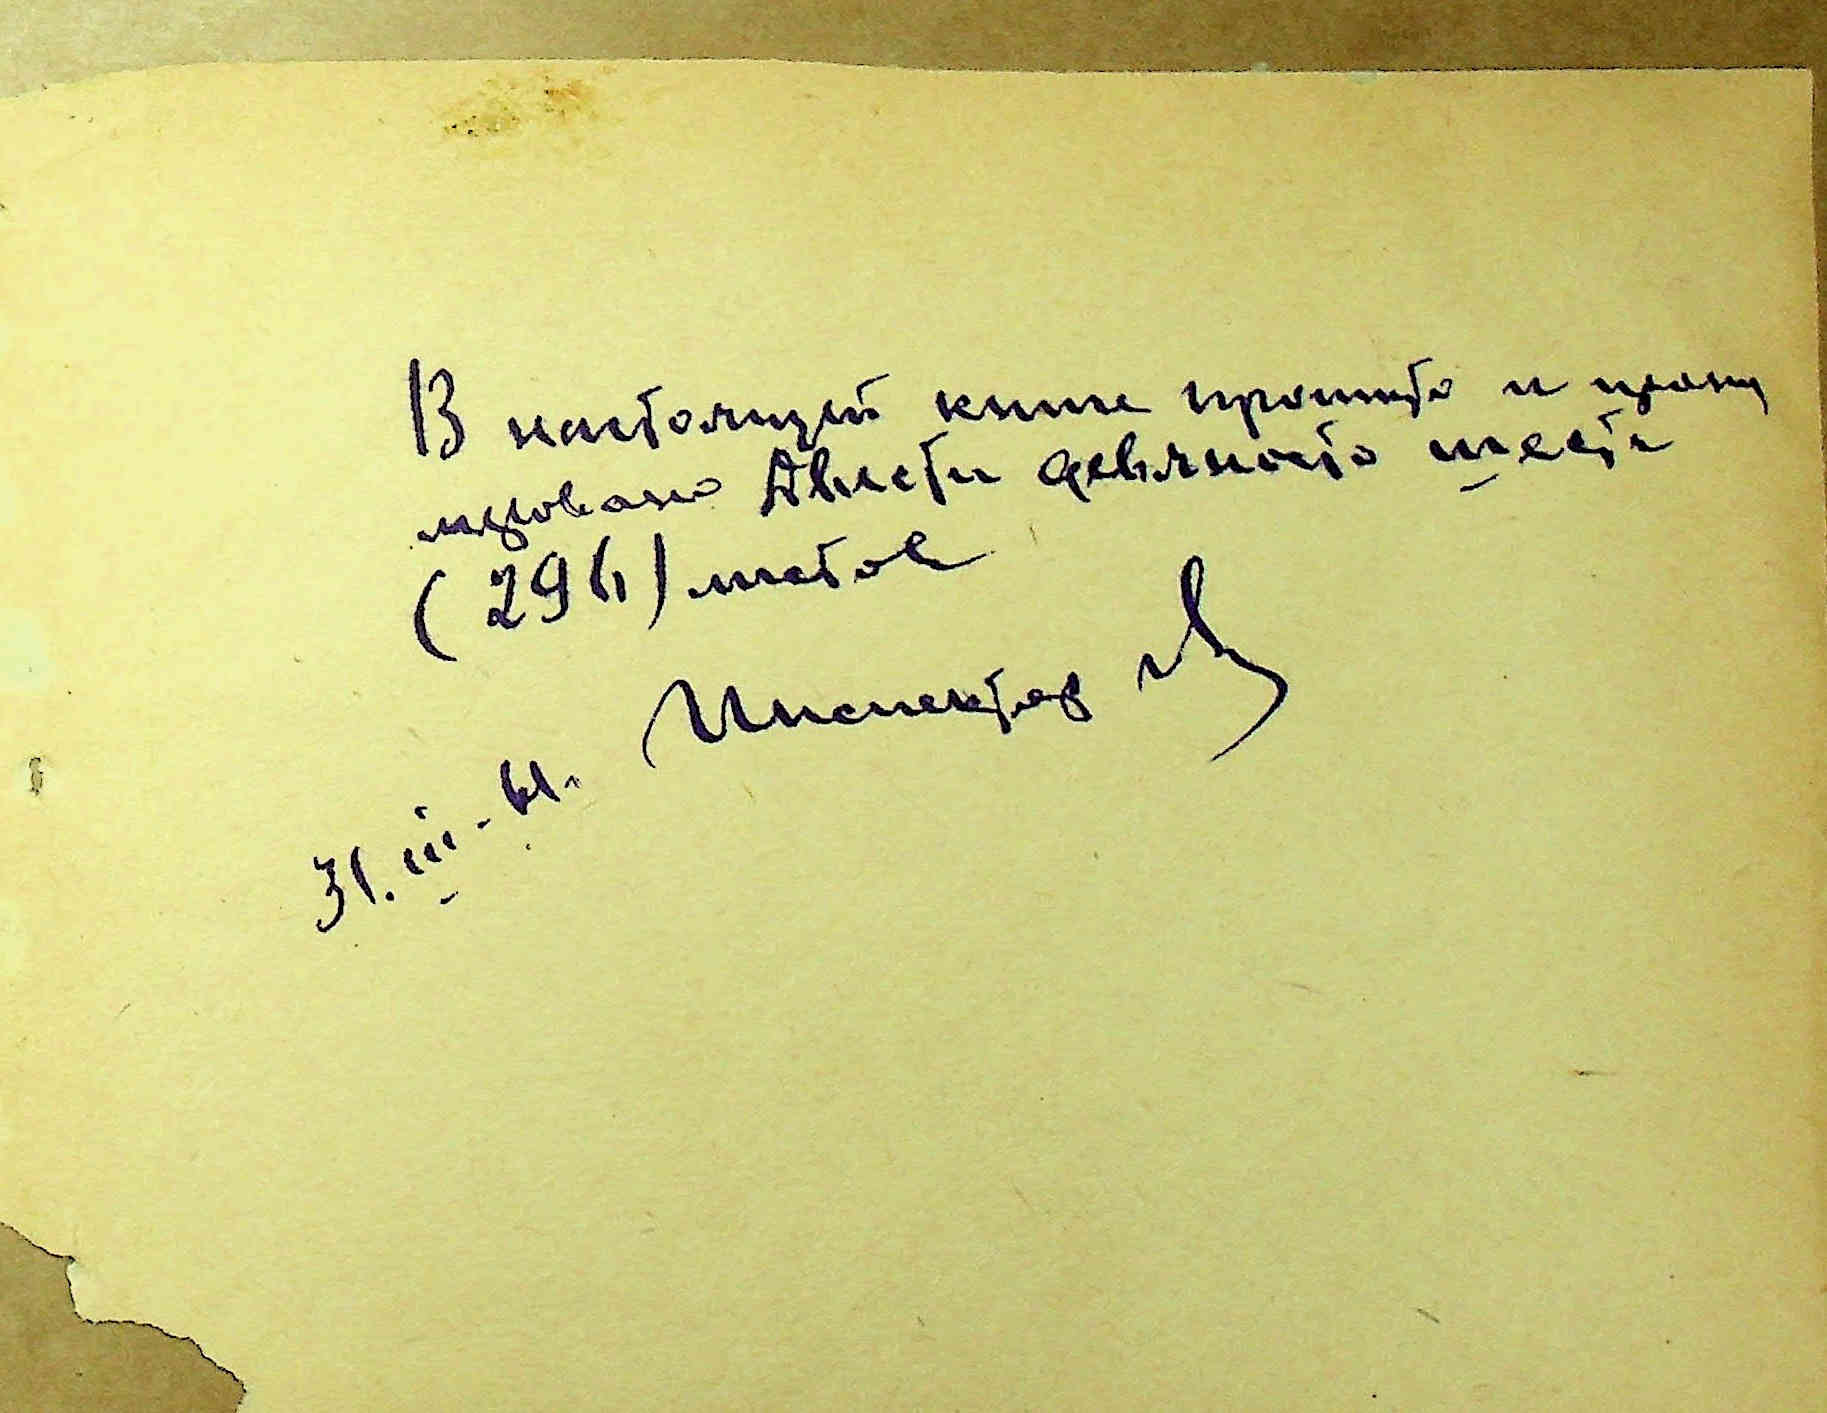 В настоящей книге прошито и прону
меровано Двести девяносто шесть
(296) листов
Инспектор
31.III-61.